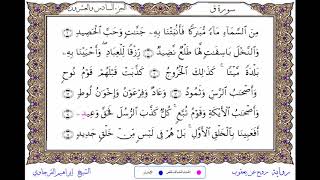 سورة ق
الجزء السادس والعشرون
مِنَ ٱلسَّمَآءِ مَآءً مُّبَٰرَكًا فَأَنۢبَتْنَا بِهِۦ جَنَّٰتٍ وَحَبَّ ٱلْحَصِيدِ
وَٱلنَّخْلَ بَاسِقَٰتٍ لَّهَا طَلْعٌ نَّضِيدٌ رِّزْقًا لِّلْعِبَادِ وَأَحْيَيْنَا بِهِۦ
بَلْدَةً مَّيْتًا كَذَٰلِكَ ٱلْخُرُوجُ كَذَّبَتْ قَبْلَهُمْ قَوْمُ نُوحٍ
وَأَصْحَٰبُ ٱلرَّسِّ وَثَمُودُ وَعَادٌ وَفِرْعَوْنُ وَإِخْوَٰنُ لُوطٍ
وَأَصْحَٰبُ ٱلْأَيْكَةِ وَقَوْمُ تُبَّعٍ كُلٌّ كَذَّبَ ٱلرُّسُلَ فَحَقَّ وَعِيدِۦ
أَفَعَيِينَا بِٱلْخَلْقِ ٱلْأَوَّلِ بَلْ هُمْ فِى لَبْسٍ مِّنْ خَلْقٍ جَدِيدٍ
رواية روح عن يعقوب
الشيخ إبراهيم الترجاوي